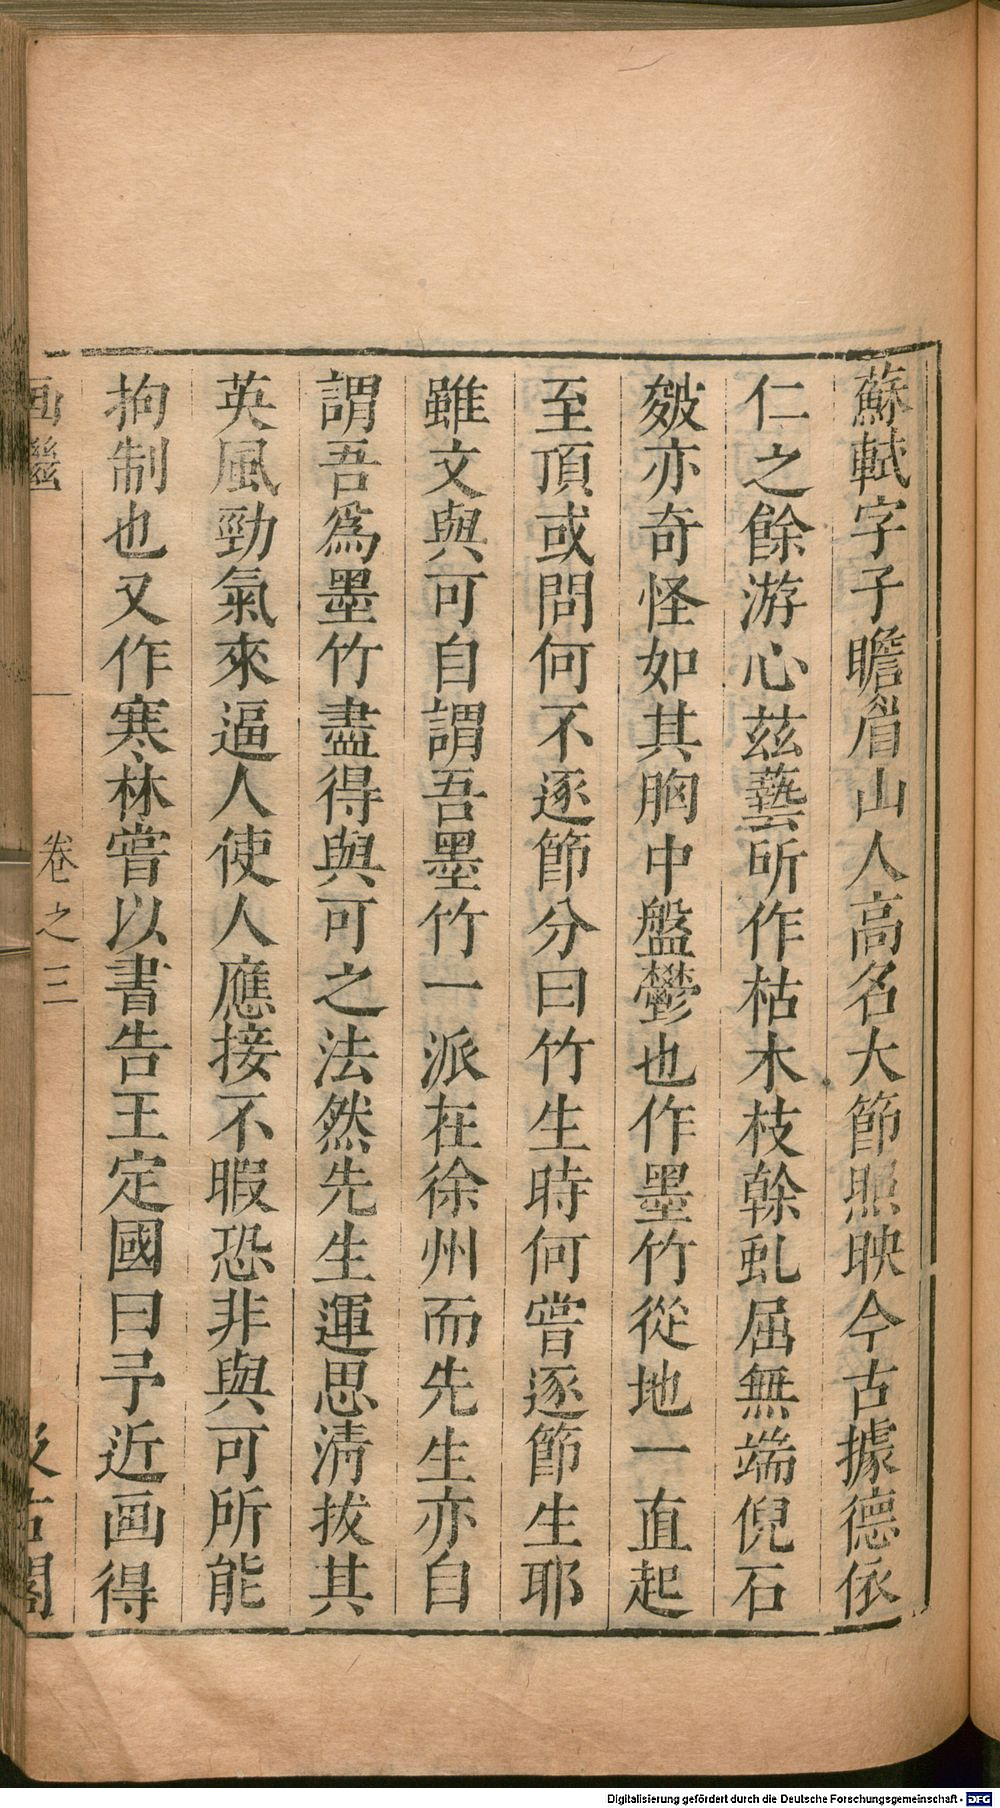 蘇軾字子瞻眉山人高名大節照映今古據德依
仁之餘游心茲藝所作枯木枝榦虬屈無端倪石
皴亦奇怪如其胸中盤鬱也作墨竹從地一直起
至頂或問何不逐節分曰竹生時何嘗逐節生耶
雖文與可自謂吾墨竹一派在徐州而先生亦自
謂吾爲墨竹盡得與可之法然先生運思淸拔其
英風勁氣來逼人使人應接不暇恐非與可所能
拘制也又作寒林嘗以書告王定國曰予近画得
画繼
卷之三
汲古閣
Digitalisierung gefördert durch die Deutsche Forschungsgemeinschaft - DFG